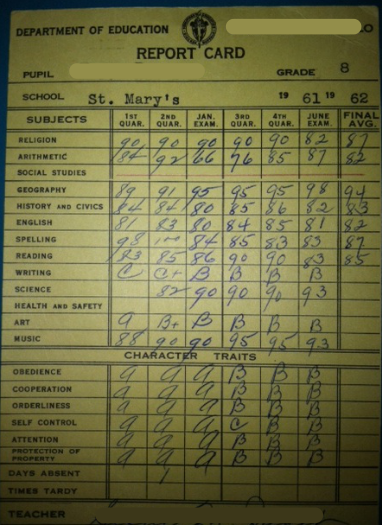 DEPARTMENT OF EDUCATION
REPORT CARD
PUPIL GRADE 8
SCHOOL St. Mary's 19 61 19 62
SUBJECTS 1ST QUAR. 2ND QUAR. JAN. EXAM. 3RD QUAR. 4TH QUAR. JUNE EXAM. FINAL AVG.
RELIGION 90 90 90 90 90 82 87
ARITHMETIC 84 92 66 76 85 87 82
SOCIAL STUDIES
GEOGRAPHY 89 91 95 95 95 98 94
HISTORY AND CIVICS 84 84 80 85 86 82 83
ENGLISH 81 83 80 84 85 81 82
SPELLING 98 100 84 85 83 83 87
READING 83 85 86 90 90 83 85
WRITING C C+ B B B B
SCIENCE 82 90 90 90 93
HEALTH AND SAFETY
ART A B+ B B B B
MUSIC 88 90 90 95 95 93
CHARACTER TRAITS
OBEDIENCE A A A B B B
COOPERATION A A A B B B
ORDERLINESS A A A B B B
SELF CONTROL A A A C B B
ATTENTION A A A B B B
PROTECTION OF PROPERTY A A A B B B
DAYS ABSENT 1
TIMES TARDY
TEACHER